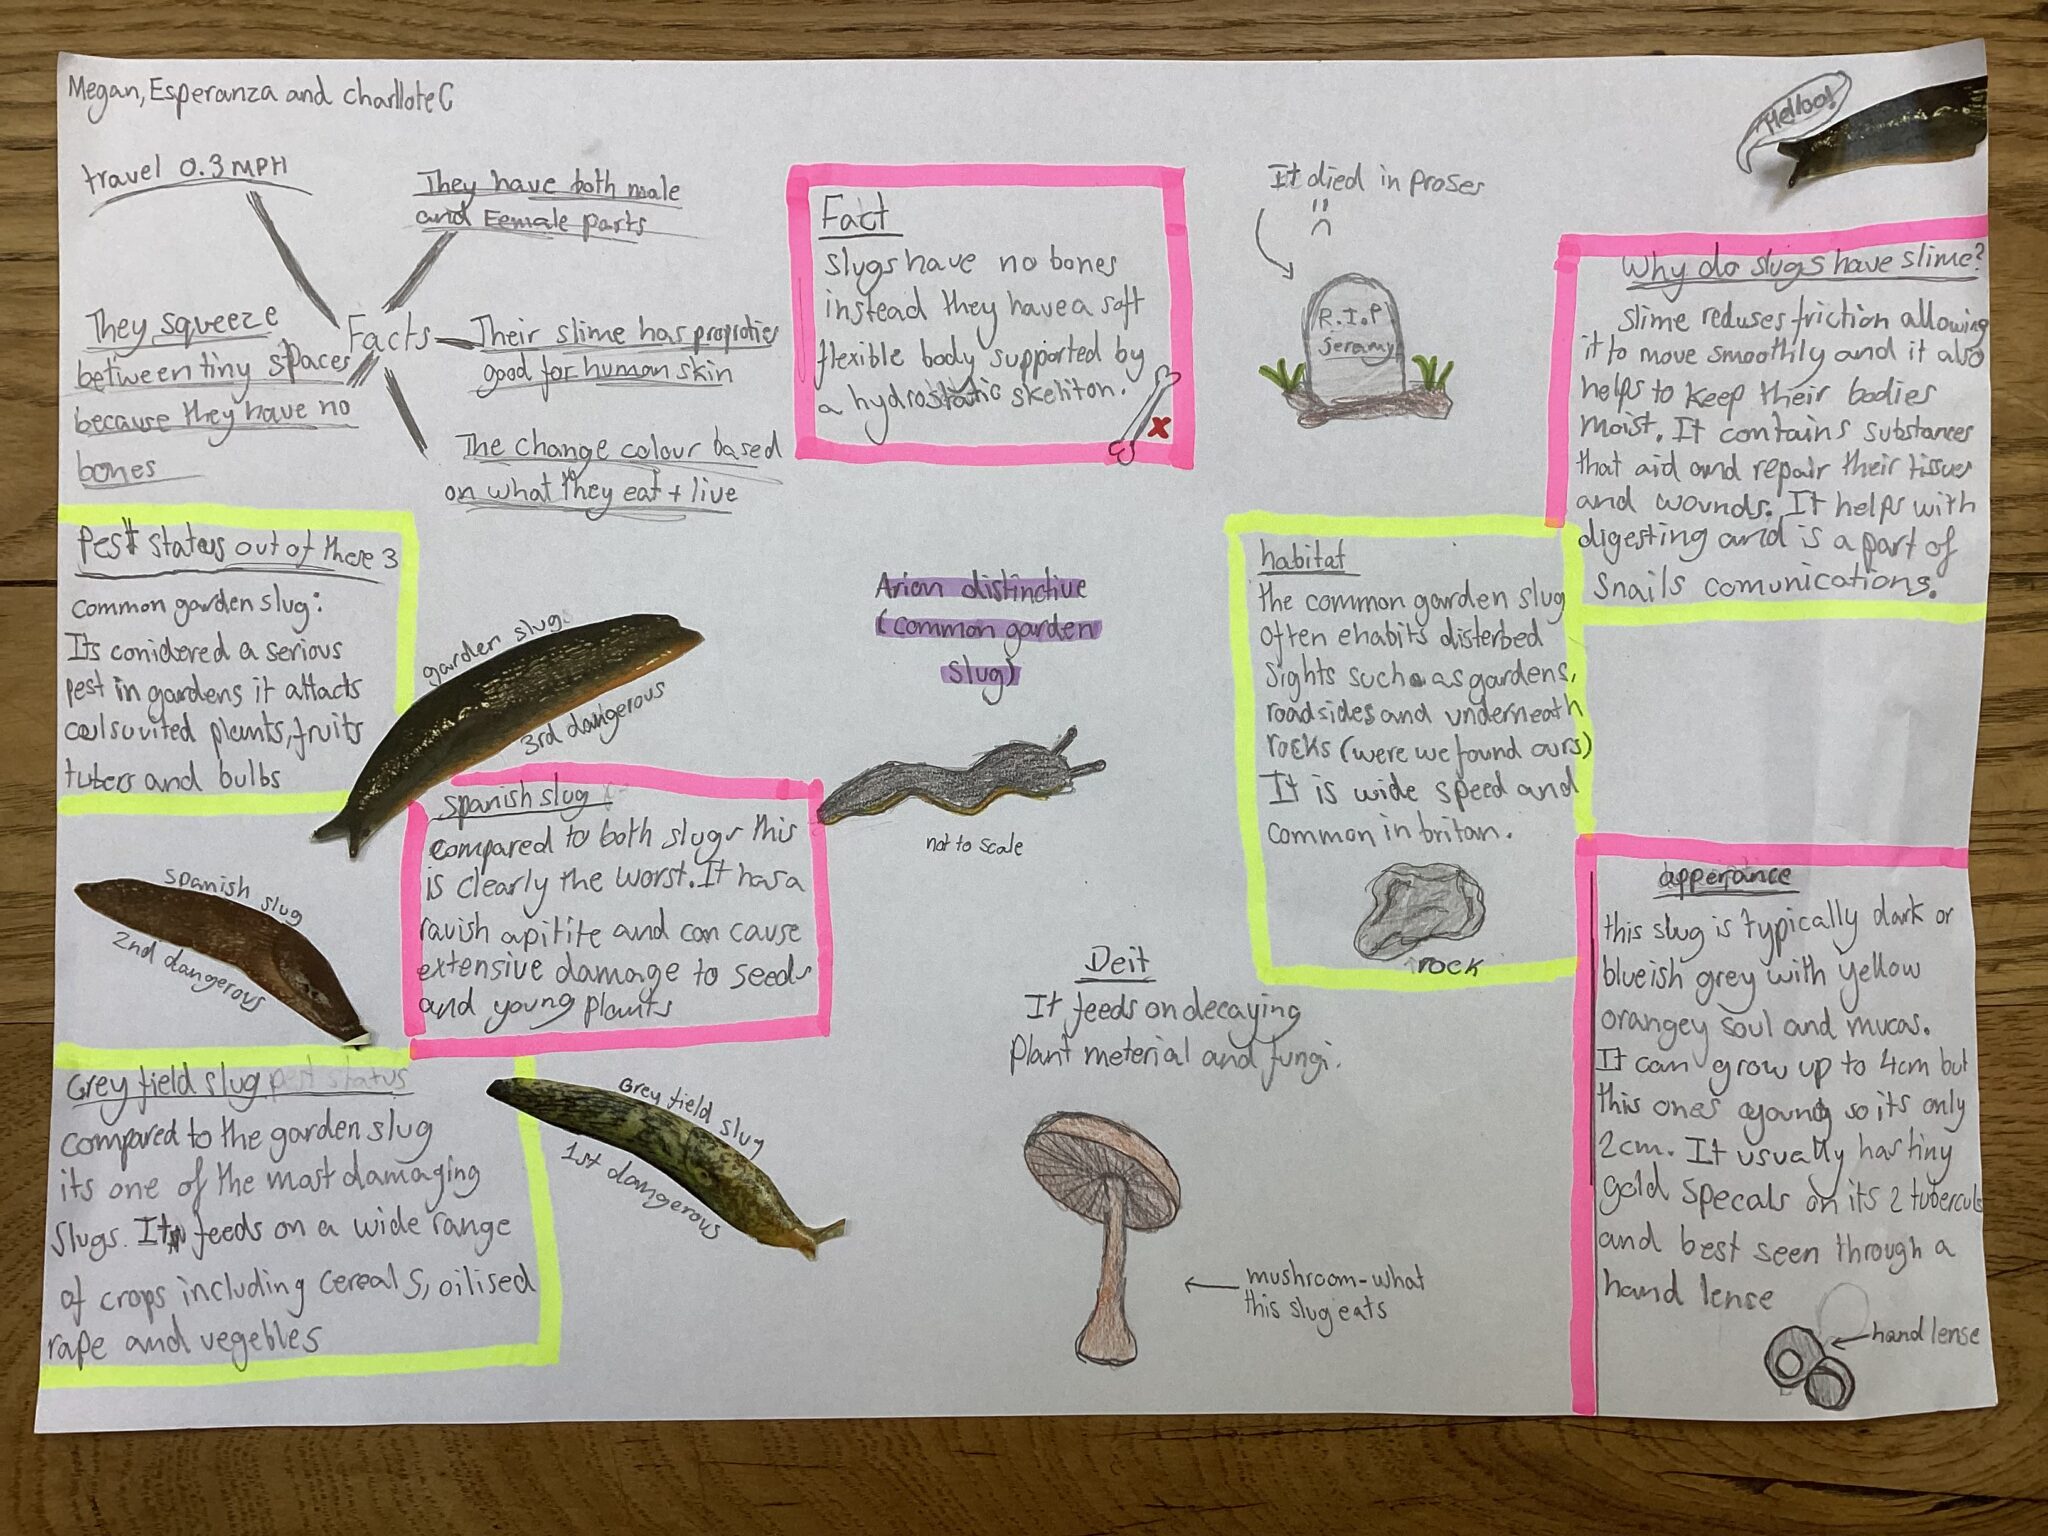 Megan, Esperanza and charlloteC
travel 0.3 MPH
They have both male
and Eemale parts
They squeeze
between tiny spaces
because they have no
bones
Facts
Their slime has proproties
good for human skin
The change colour based
on what they eat + live
Fact
slugs have no bones
instead they have a soft
flexible body supported by
a hydrostatic skeliton.
x
It died in proses
R.I.P
jeramy
Helloo!
Why do slugs have slime?
Slime reduses friction allowing
it to move smoothly and it also
helps to keep their bodies
moist. It contains substances
that aid and repair their tissues
and wounds. It helps with
digesting and is a part of
Snails comunications.
Pest status out of these 3
common garden slug:
Its conidered a serious
pest in gardens it attacts
plants, fruits
tubers and bulbs
garden slug
3rd dangerous
Arion distinctive
(common garden
slug)
not to scale
habitat
the common garden slug
often ehabits disterbed
sights such as gardens,
roadsides and underneath
rocks (were we found ours)
It is wide speed and
common in britan.
rock
spanish slug
compared to both slugs this
is clearly the worst. It has a
ravish apitite and can cause
extensive damage to seeds
and young plants
spanish slug
2nd dangerous
Grey field slug pest status
compared to the garden slug
its one of the most damaging
slugs. It feeds on a wide range
of crops including cereals, oilised
rape and vegebles
Grey field slug
1st dangerous
Deit
It feeds on decaying
plant meterial and fungi.
mushroom-what
this slug eats
apperance
this slug is typically dark or
blueish grey with yellow
orangey soul and mucas.
It can grow up to 4cm but
this ones young so its only
2cm. It usually has tiny
gold specals on its 2 tubercules
and best seen through a
hand lense
hand lense